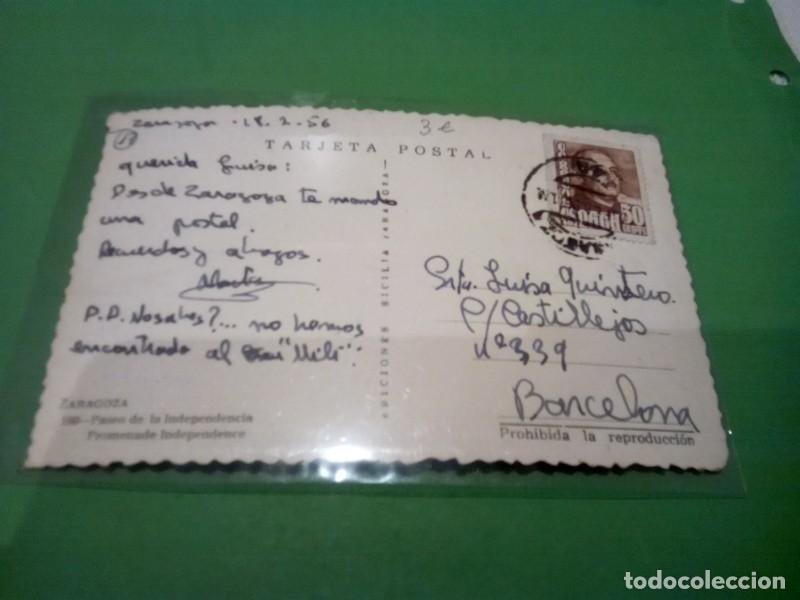 Zaragoza - 18. 2. 56
3 €
TARJETA POSTAL
querida Luisa:
Desde Zaragoza te mando
una postal.
Recuerdos y abrazos.
P.D. No sabes?... no hemos
encontrado al "Mili".
ZARAGOZA
Paseo de la Independencia
Promenade Independence
EDICIONES SICILIA (ZARAGOZA)
CORREOS
50
CENTS
Srta. Luisa Quintero.
C/ Castillejos
nº 339
Barcelona
Prohibida la reproducción
todocoleccion